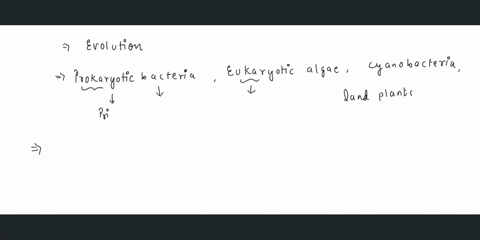 ⇒ Evolution
⇒ Prokaryotic bacteria, Eukaryotic algae, cyanobacteria,
land plants
↓ ↓ ↓
Pri
⇒